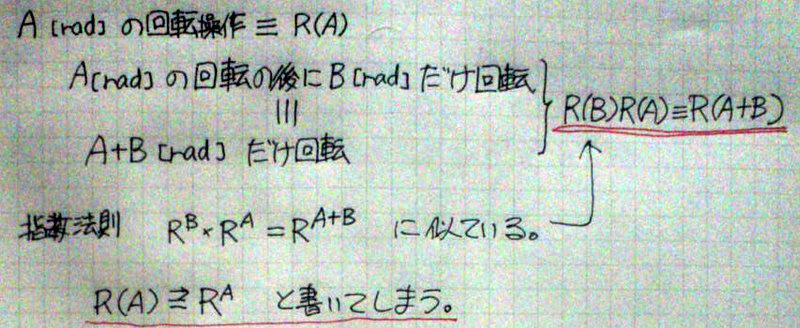 A [rad] の回転操作 ≡ R(A)
A[rad] の回転の後に B[rad] だけ回転
≡
A+B [rad] だけ回転
R(B)R(A)≡R(A+B)
指数法則 R^B × R^A = R^{A+B} に似ている。
R(A) ⇄ R^A と書いてしまう。